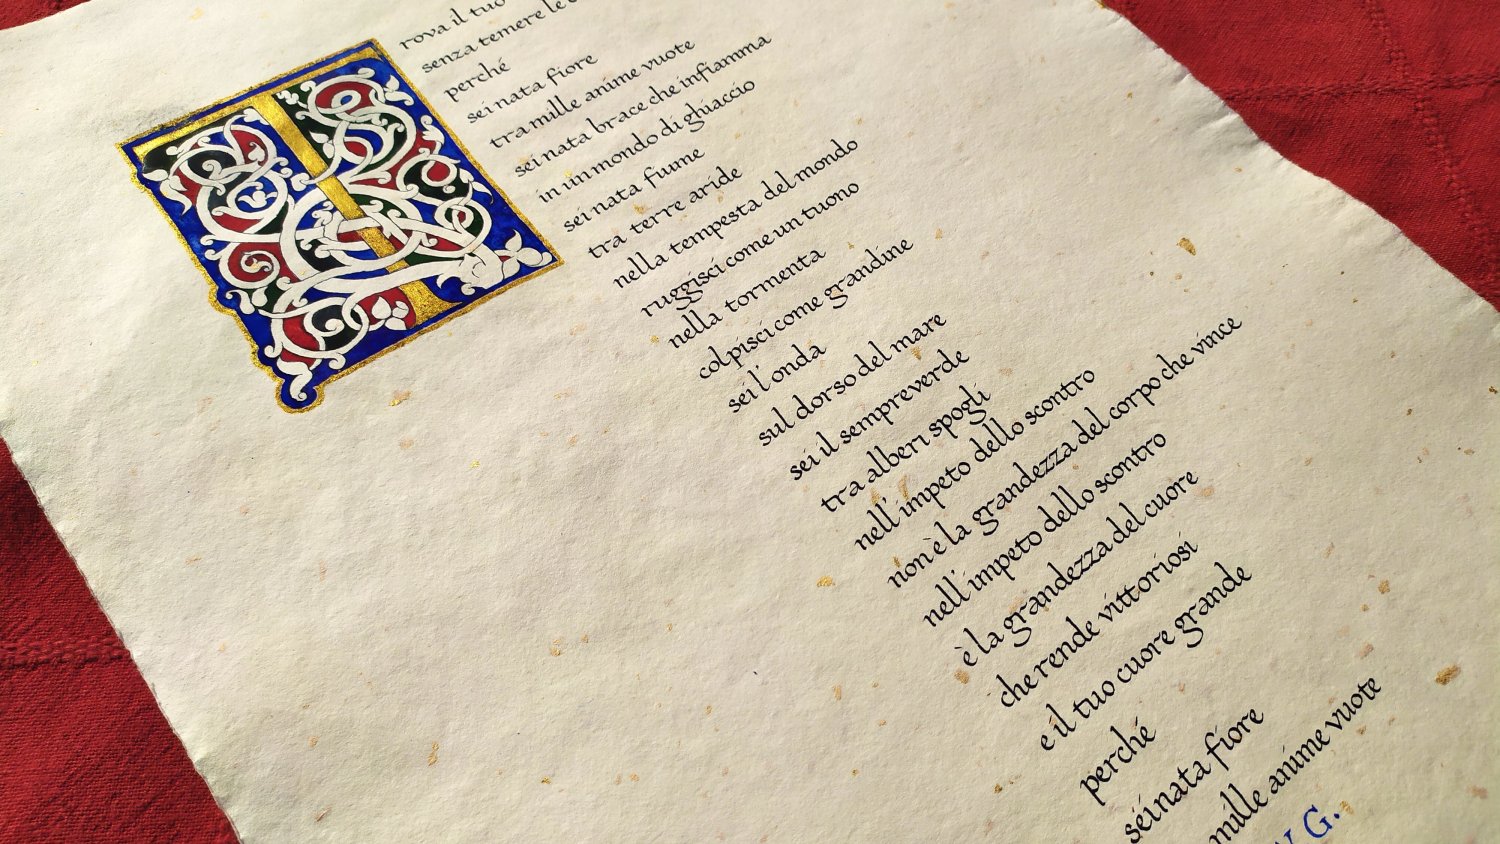 Trova il tuo
senza temere le
perché
sei nata fiore
tra mille anime vuote
sei nata brace che infiamma
in un mondo di ghiaccio
sei nata fiume
tra terre aride
nella tempesta del mondo
ruggisci come un tuono
nella tormenta
colpisci come grandine
sei l'onda
sul dorso del mare
sei il sempreverde
tra alberi spogli
nell'impeto dello scontro
non è la grandezza del corpo che vince
nell'impeto dello scontro
è la grandezza del cuore
che rende vittoriosi
e il tuo cuore grande
perché
sei nata fiore
mille anime vuote
G.